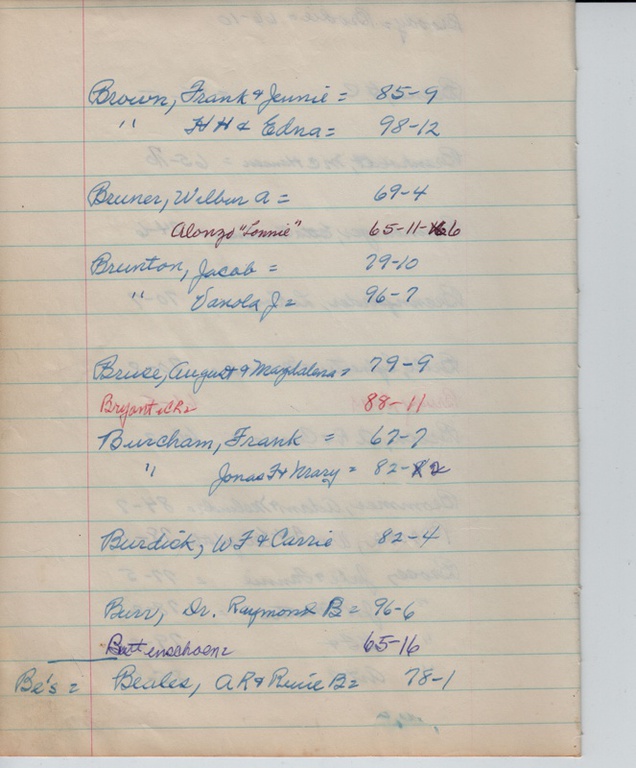 Brown, Frank & Jennie = 85-9
" HH & Edna = 98-12
Bruner, Wilbur A = 69-4
Alonzo "Lonnie" 65-11-66
Brunton, Jacob = 79-10
" Vanola J = 96-7
Bruse, August & Magdalena = 79-9
Bryant 88-11
Burcham, Frank = 67-7
" Jonas F & Mary = 82-2
Burdick, WF & Carrie 82-4
Burr, Dr. Raymond B = 96-6
Buttenschoen 65-16
Be's = Beales, AR & B = 78-1